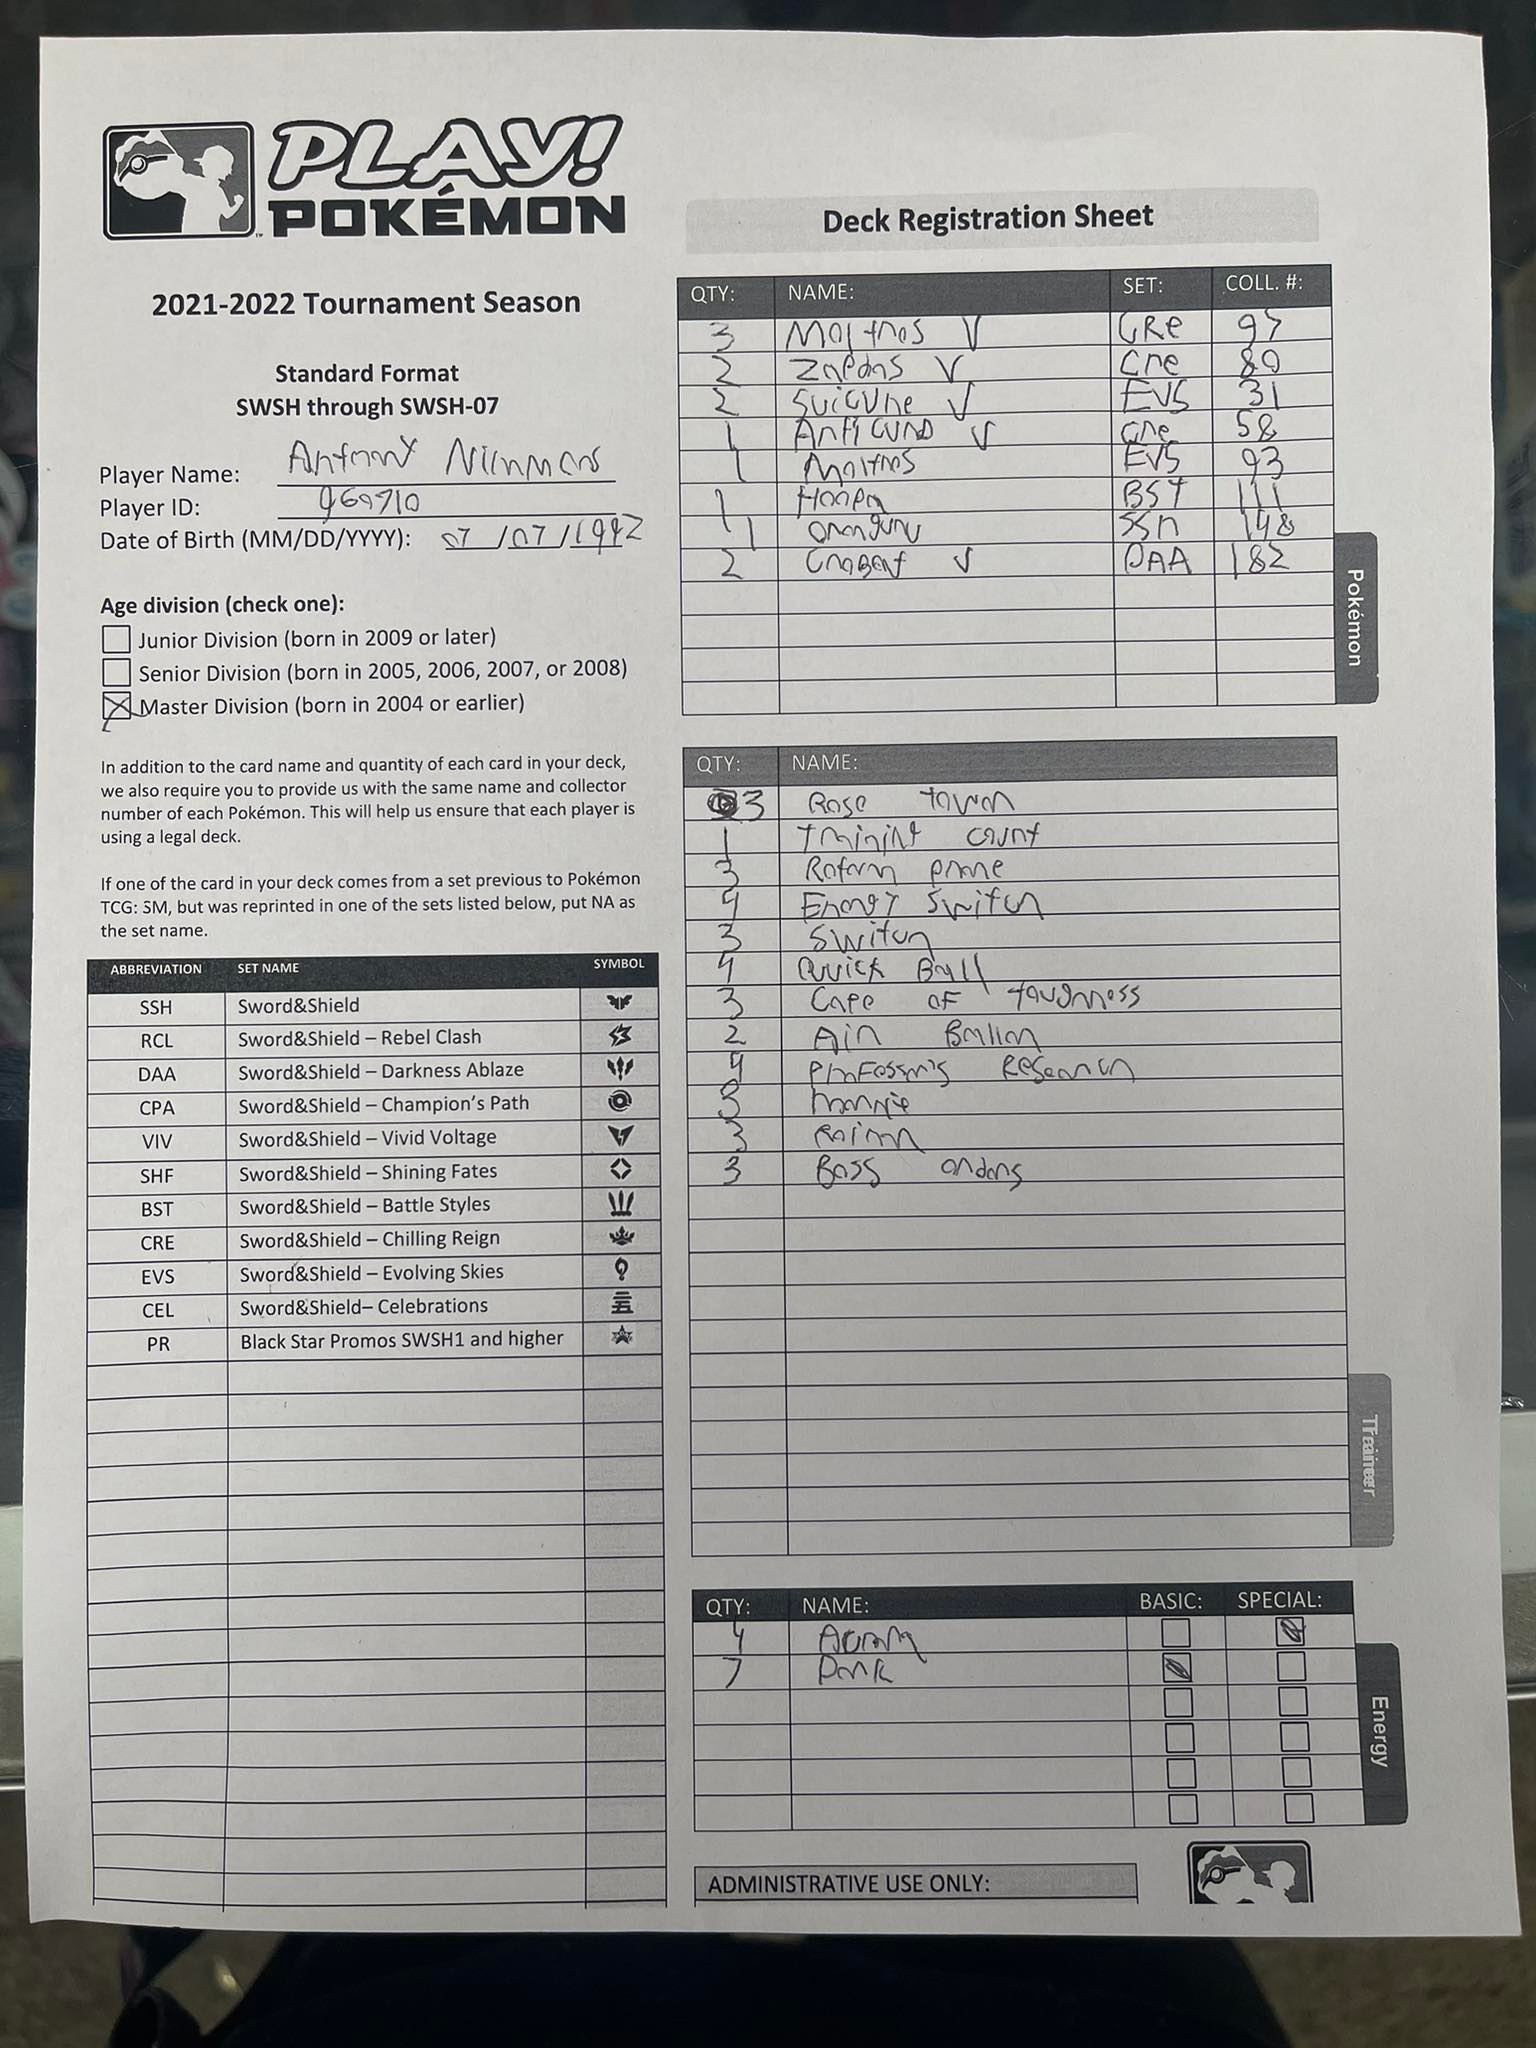 PLAY!
POKÉMON
™
2021-2022 Tournament Season
Standard Format
SWSH through SWSH-07
Player Name:
Player ID: 969710
Date of Birth (MM/DD/YYYY): 07/07/1992
Age division (check one):
Junior Division (born in 2009 or later)
Senior Division (born in 2005, 2006, 2007, or 2008)
Master Division (born in 2004 or earlier)
In addition to the card name and quantity of each card in your deck,
we also require you to provide us with the same name and collector
number of each Pokémon. This will help us ensure that each player is
using a legal deck.
If one of the card in your deck comes from a set previous to Pokémon
TCG: SM, but was reprinted in one of the sets listed below, put NA as
the set name.
ABBREVIATION SET NAME SYMBOL
SSH Sword&Shield
RCL Sword&Shield – Rebel Clash
DAA Sword&Shield – Darkness Ablaze
CPA Sword&Shield – Champion's Path
VIV Sword&Shield – Vivid Voltage
SHF Sword&Shield – Shining Fates
BST Sword&Shield – Battle Styles
CRE Sword&Shield – Chilling Reign
EVS Sword&Shield – Evolving Skies
CEL Sword&Shield– Celebrations
PR Black Star Promos SWSH1 and higher
Deck Registration Sheet
QTY: NAME: SET: COLL. #:
3 Moltres V CRe 97
2 Zapdos V Cre 80
2 Suicune V EVS 31
1 Articuno V Cre 58
1 Moltres EVS 93
1 Hoopa BST 111
1 Oranguru SSH 148
2 Crobat V DAA 182
Pokémon
QTY: NAME:
3 Rose tower
1 training court
3 Rotom phone
4 Energy Switch
3 Switch
4 Quick Ball
3 Cape of toughness
2 Air Ballon
4 Professor's Research
3 marnie
3 Raihan
3 Boss orders
Trainer
QTY: NAME: BASIC: SPECIAL:
4 Aurora
7 Dark
Energy
ADMINISTRATIVE USE ONLY: